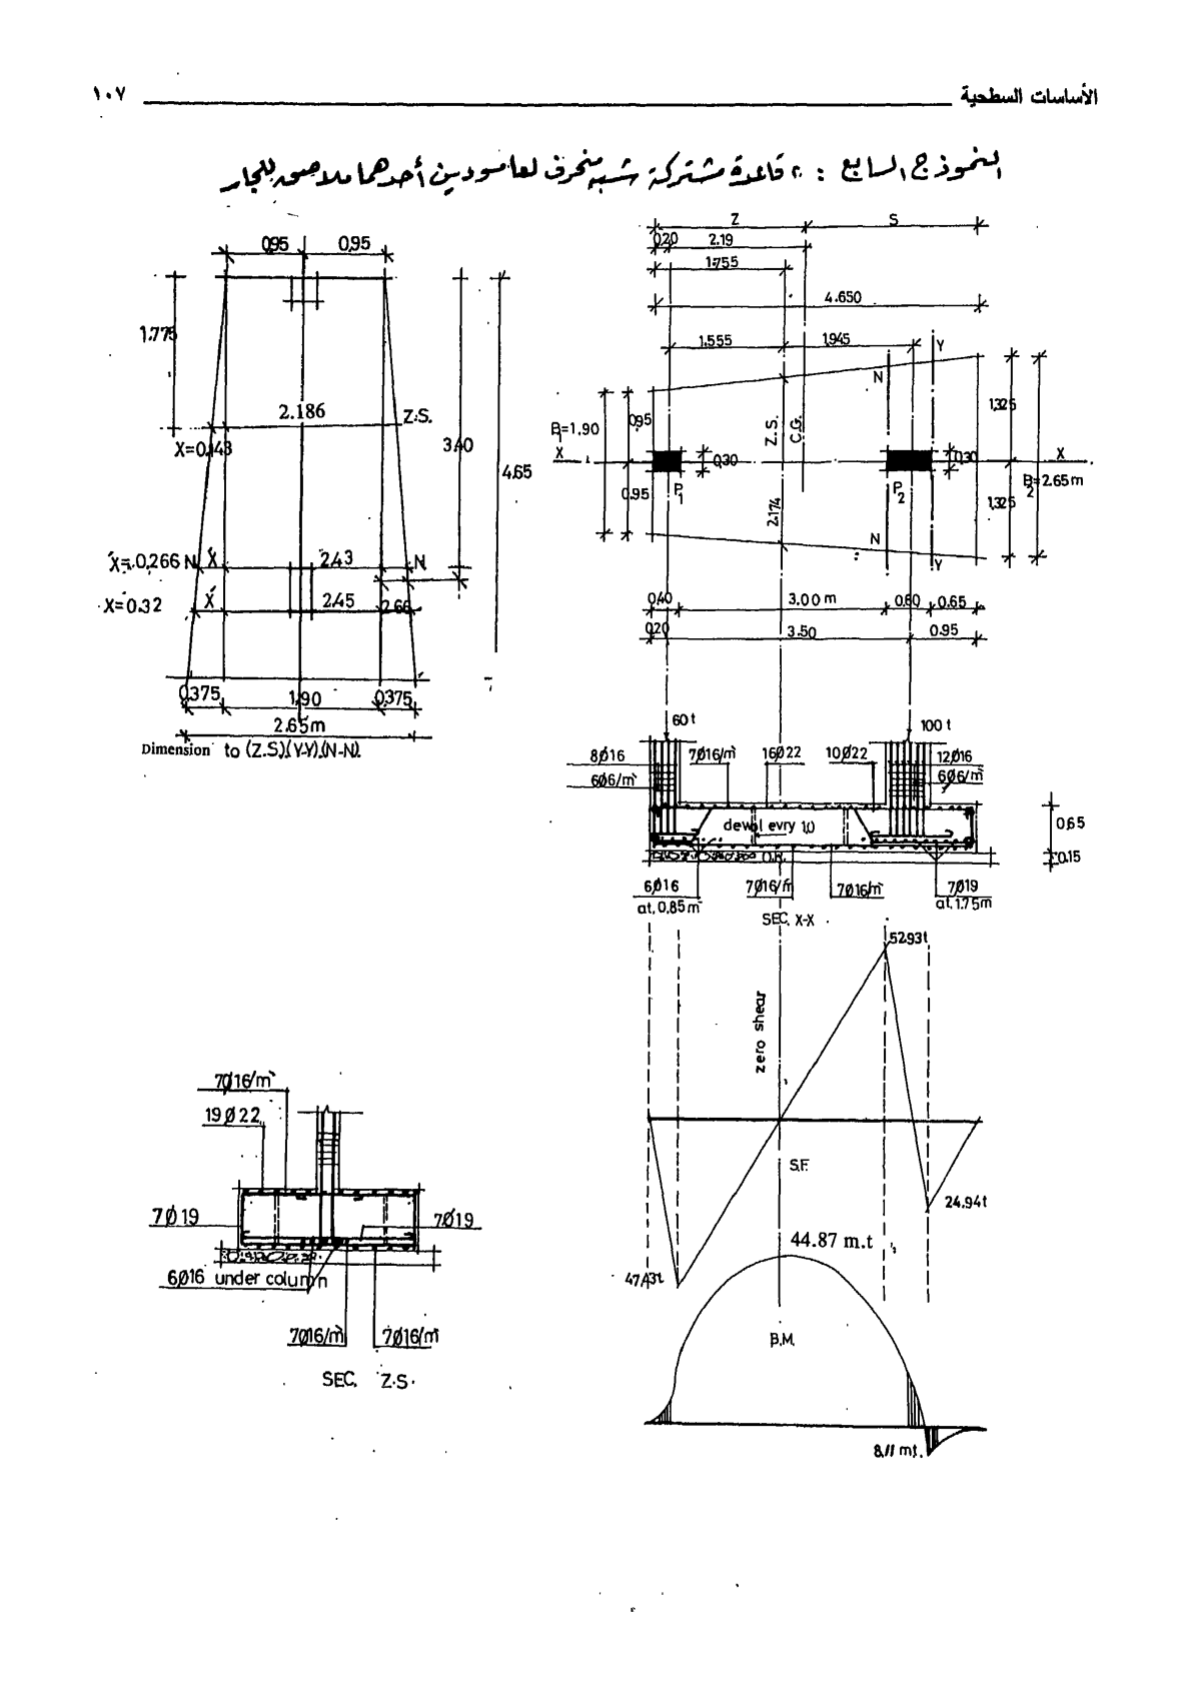 الأساسات السطحية ١٠٧
النموذج السابع : قاعدة مشتركة شبه منحرف لعامودين أحدهما ملاصق للجار
0.95 0.95
1.775
2.186 Z.S.
X=0.143
3.40
4.65
X́=0.266 N X́ 2.43 N
X=0.32 X́ 2.45 2.66
0.375 1.90 0.375
2.65m
Dimension to (Z.S.).(Y-Y).(N-N).
Z S
0.20 2.19
1.755
4.650
1.555 1.945 Y
N
B1=1.90 0.95 Z.S. C.G. 1.325
X 0.30 0.30 X
0.95 P1 P2 B2=2.65m
2.174 1.325
N Y
0.40 3.00 m 0.60 0.65
0.20 3.50 0.95
60 t 100 t
8Ø16 7Ø16/m` 16Ø22 10Ø22 12Ø16
6Ø6/m` 6Ø6/m`
dewol evry 1.0 0.65
0.15
6Ø16 7Ø16/m` 7Ø16/m` 7Ø19
at. 0.85m` at. 1.75m
SEC. X-X
52.93t
zero shear
S.F.
24.94t
47.43t
44.87 m.t
B.M.
8.11 mt.
7Ø16/m`
19Ø22
7Ø19 7Ø19
6Ø16 under column
7Ø16/m` 7Ø16/m`
SEC. Z.S.